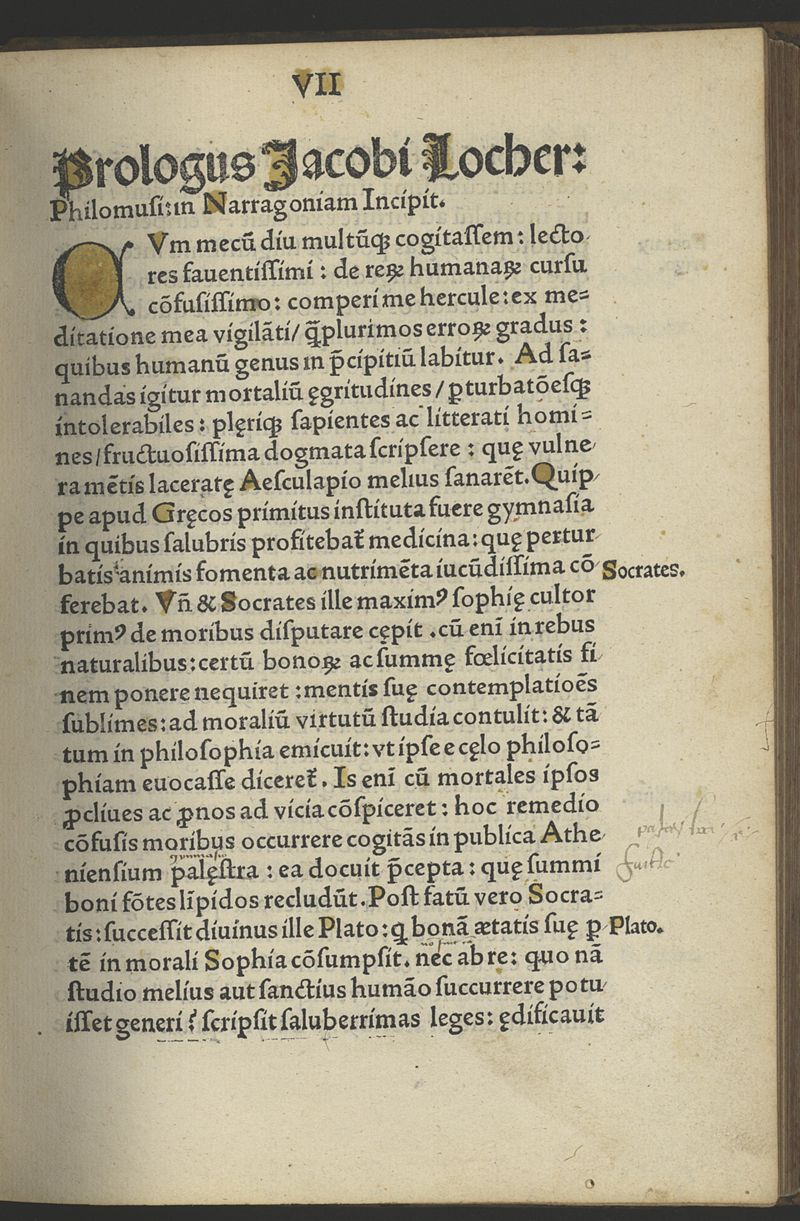 VII
Prologus Jacobi Locher:
Philomusi: in Narragoniam Incipit.
CVm mecū diu multūqꝫ cogitassem: lecto
res fauentissimi: de reꝝ humanaꝝ cursu
cōfusissimo: comperi me hercule: ex me=
ditatione mea vigilāti/ q̄plurimos erroꝝ gradus:
quibus humanū genus in p̄cipitiū labitur. Ad sa=
nandas igitur mortaliū ęgritudines/ ꝑturbatōesqꝫ
intolerabiles: plęriqꝫ sapientes ac litterati homi=
nes/ fructuosissima dogmata scripsere: quę vulne
ra mētis laceratę Aesculapio melius sanarēt. Quip
pe apud Gręcos primitus instituta fuere gymnasia
in quibus salubris profitebat̄ medicina: quę pertur
batis animis fomenta ac nutrimēta iucūdissima cō
Socrates.
ferebat. Vn̄ & Socrates ille maximꝰ sophię cultor
primꝰ de moribus disputare cępit. cū eni̅ in rebus
naturalibus: certū bonoꝝ ac summę fœlicitatis fi
nem ponere nequiret: mentis suę contemplatiōes
sublimes: ad moraliū virtutū studia contulit: & tā
tum in philosophia emicuit: vt ipse e cęlo philoso=
phiam euocasse diceret̄. Is eni̅ cū mortales ipsos
ꝓcliues ac ꝓnos ad vicia cōspiceret: hoc remedio
cōfusis moribus occurrere cogitās in publica Athe
niensium palęstra: ea docuit p̄cepta: quę summi
boni fōtes li̅pidos recludūt. Post fatū vero Socra=
tis: successit diuinus ille Plato: q bonā ætatis suę ꝑ
Plato.
tē in morali Sophia cōsumpsit. nec ab re: quo nā
studio melius aut sanctius humāo succurrere potu
isset generi? scripsit saluberrimas leges: ędificauit